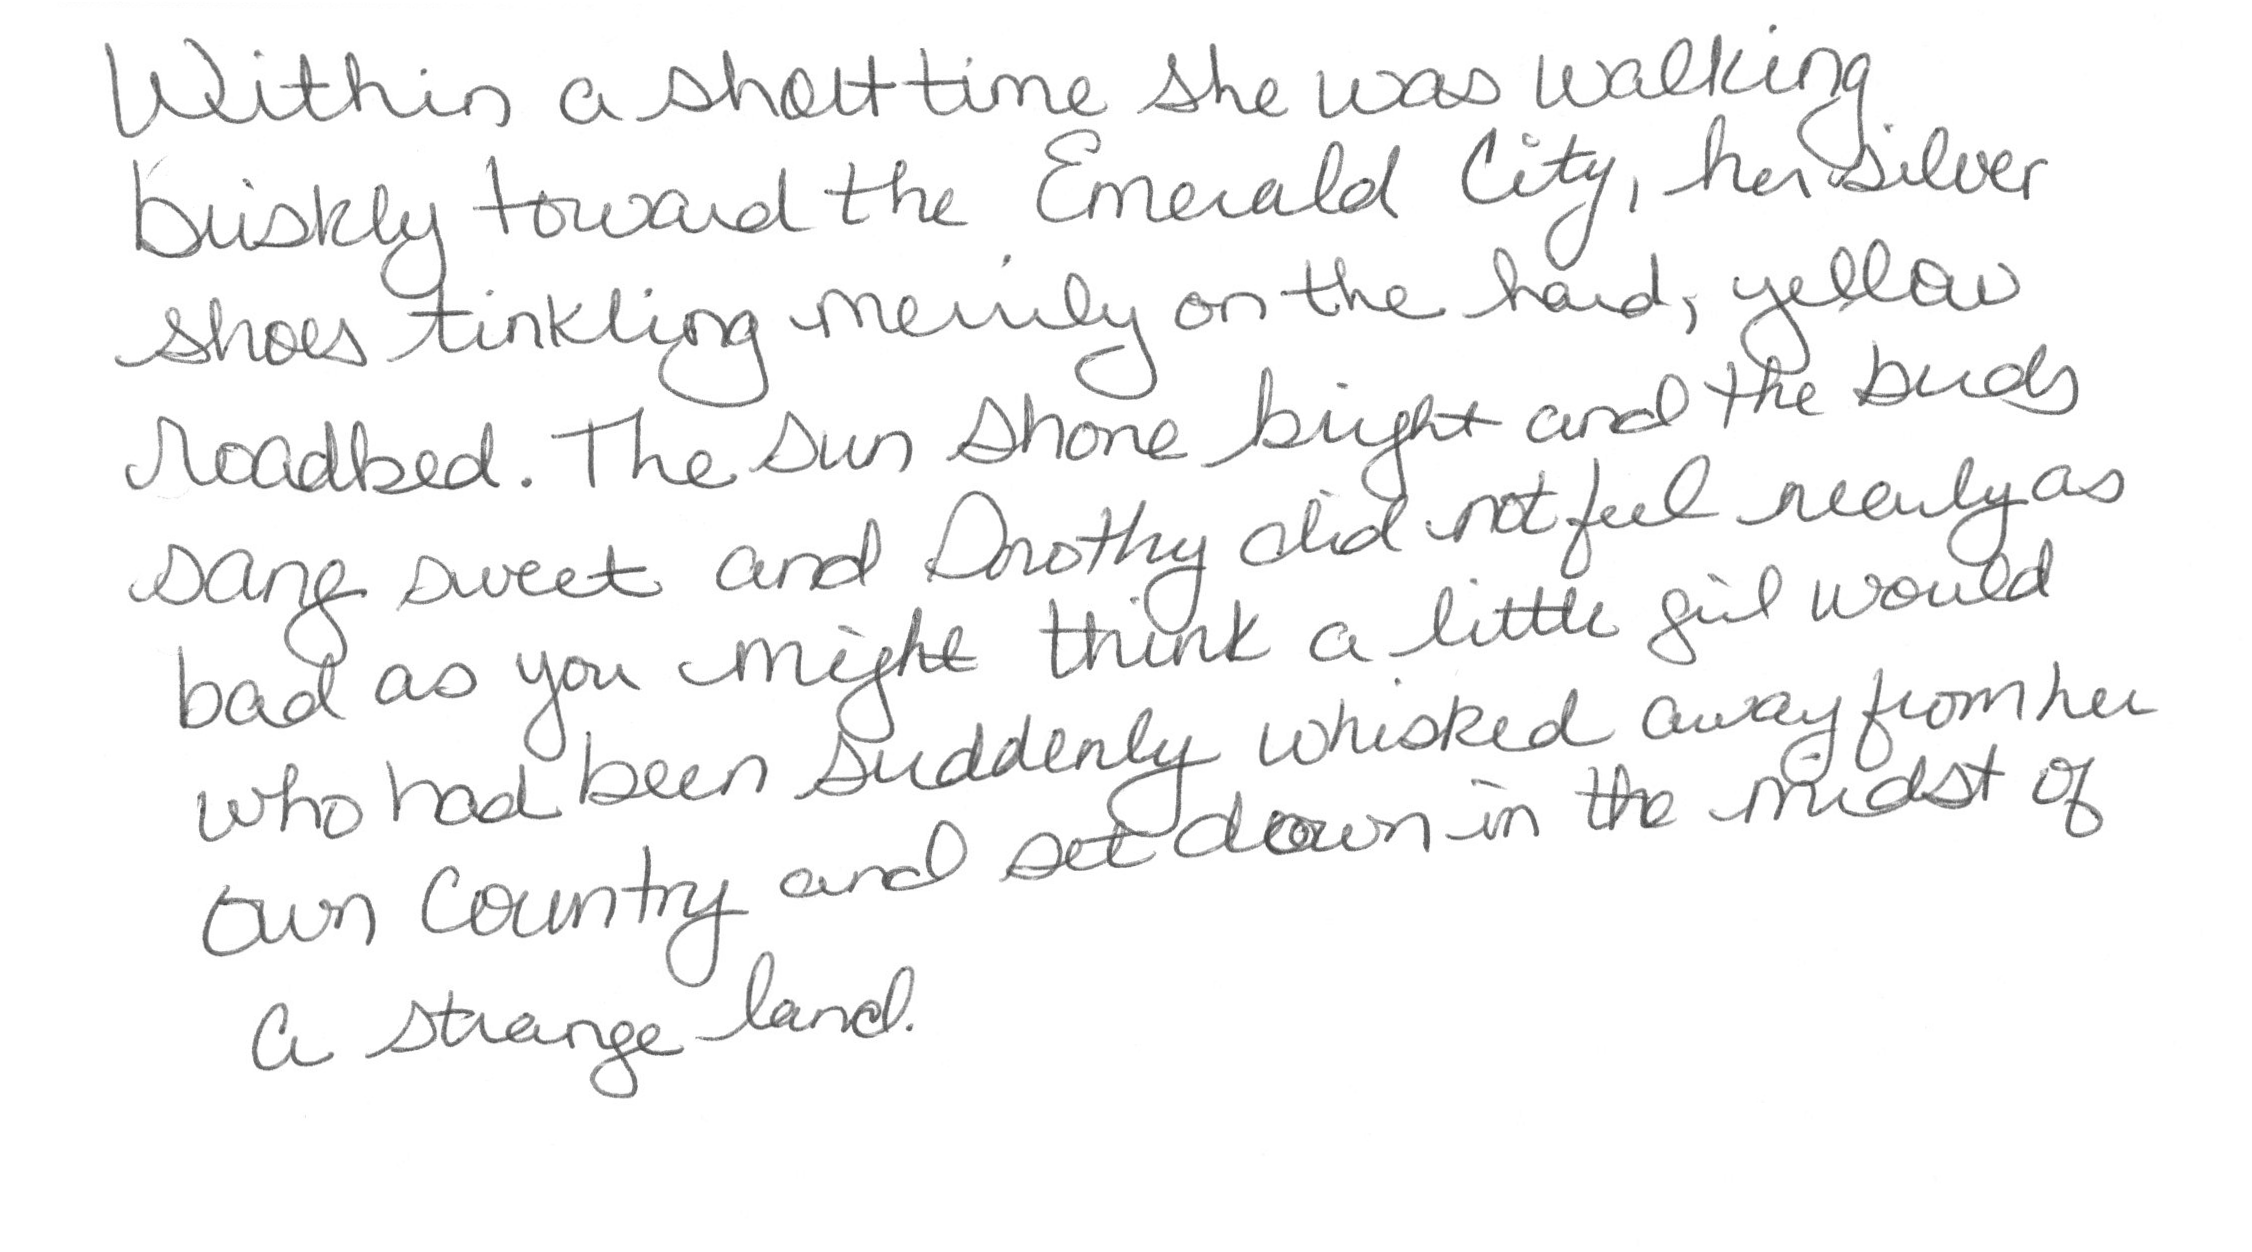 Within a short time she was walking
briskly toward the Emerald City, her silver
shoes tinkling merrily on the hard, yellow
roadbed. The sun shone bright and the birds
sang sweet and Dorothy did not feel nearly as
bad as you might think a little girl would
who had been suddenly whisked away from her
own country and set down in the midst of
a strange land.